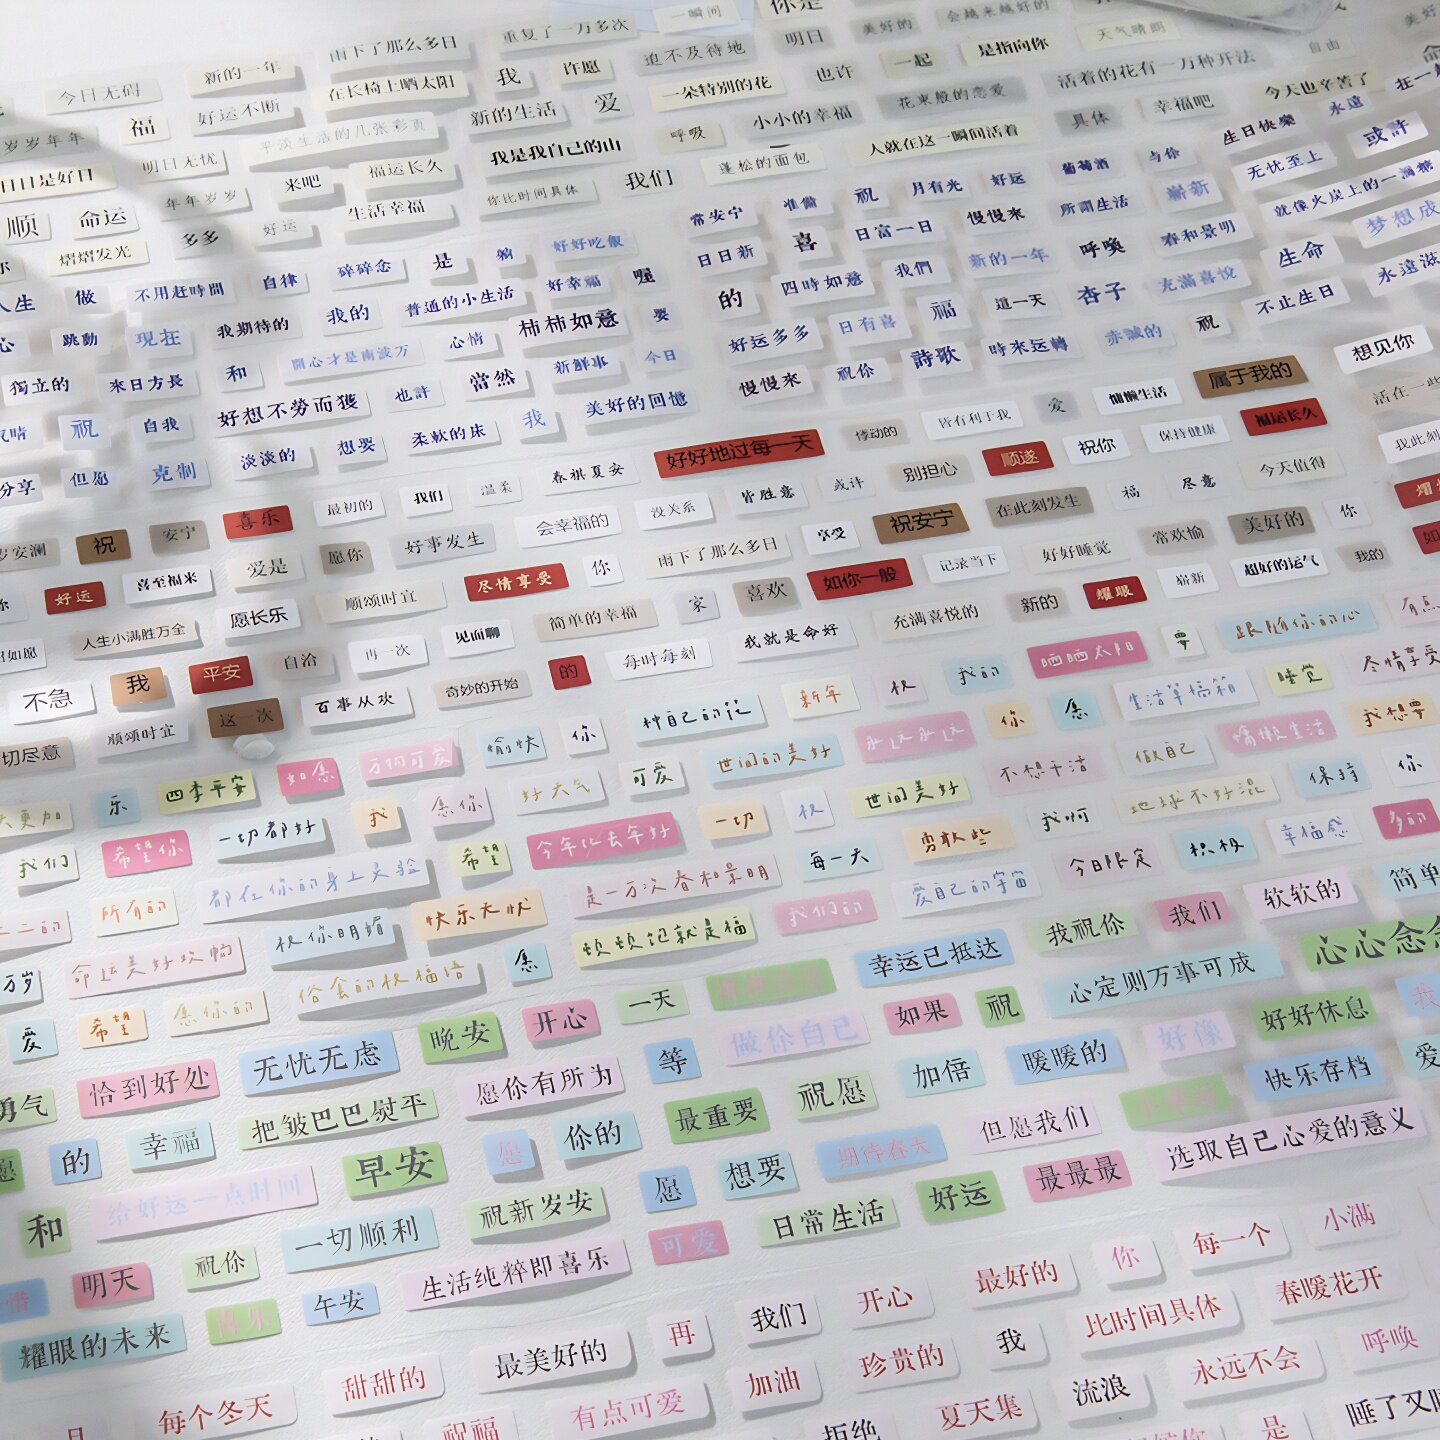 一瞬间
你是
美好的
会越来越好的
雨下了那么多日
重复了一万多次
明日
天气晴朗
自由
今日无码
新的一年
在长椅上晒太阳
我
许愿
迫不及待地
一起
是指向你
岁岁年年
福
好运不断
新的生活
爱
一朵特别的花
也许
活着的花有一万种开法
今天也辛苦了
平淡生活的几张彩页
呼吸
小小的幸福
花束般的恋爱
具体
幸福吧
永遠
日日是好日
明日无忧
福运长久
我是我自己的山
蓬松的面包
人就在这一瞬间活着
生日快樂
或許
年年岁岁
来吧
你比时间具体
我们
葡萄酒
与你
无忧至上
顺
命运
好运
生活幸福
常安宁
准備
祝
月有光
好运
所謂生活
嶄新
就像火炭上的一滴糖
熠熠发光
多多
碎碎念
是
好好吃飯
日日新
喜
日富一日
慢慢来
呼喚
春和景明
生命
人生
做
不用赶時間
自律
普通的小生活
好幸福
喔
的
四時如意
我們
新的一年
杏子
充滿喜悅
不止生日
跳動
現在
我期待的
我的
心情
柿柿如意
要
好运多多
日有喜
福
這一天
赤誠的
祝
想见你
獨立的
来日方長
和
開心才是南波万
當然
新鮮事
今日
慢慢來
祝你
詩歌
時來运轉
属于我的
祝
自我
好想不勞而獲
也許
我
美好的回憶
悸动的
皆有利于我
爱
慵懒生活
福运长久
但愿
克制
淡淡的
想要
柔軟的床
好好地过每一天
别担心
顺遂
祝你
保持健康
喜乐
最初的
我们
温柔
春祺夏安
皆胜意
或许
在此刻发生
福
尽意
今天值得
祝
安宁
愿你
好事发生
会幸福的
没关系
享受
祝安宁
常欢愉
美好的
你
好运
喜至福来
爱是
顺颂时宜
尽情享受
你
雨下了那么多日
如你一般
记录当下
好好睡觉
崭新
超好的运气
我的
人生小满胜万全
愿长乐
再一次
见面聊
简单的幸福
家
喜欢
充满喜悦的
新的
耀眼
不急
我
平安
自洽
百事从欢
奇妙的开始
的
每时每刻
我就是命好
晒晒太阳
要
跟随你的心
切尽意
顺颂时宜
这一次
种自己的花
新年
祝
我的
你
愿
生活草稿箱
睡觉
尽情享受
乐
四季平安
如愿
万物可爱
愉快
你
可爱
世间的美好
永远永远
不想干活
做自己
慵懒生活
我想要
我们
希望你
一切都好
我
愿你
好天气
一切
祝
世间美好
我啊
地球不好混
保持
你
所有的
都在你的身上灵验
希望
今年比去年好
每一天
勇敢些
今日限定
积极
幸福感
多的
命运美好欢畅
祝你明媚
快乐无忧
是一万次春和景明
我们的
爱自己的宇宙
我祝你
我们
软软的
简单
万岁
愿你的
俗套的祝福语
愿
顿顿饱就是福
幸运已抵达
心定则万事可成
爱
希望
无忧无虑
晚安
开心
一天
做你自己
如果
祝
好像
好好休息
勇气
恰到好处
把皱巴巴熨平
愿你有所为
等
最重要
祝愿
加倍
暖暖的
快乐存档
的
幸福
早安
愿
你的
期待春天
但愿我们
选取自己心爱的意义
和
给好运一点时间
一切顺利
祝新岁安
愿
想要
日常生活
好运
最最最
明天
祝你
午安
生活纯粹即喜乐
可爱
最好的
你
每一个
小满
耀眼的未来
最美好的
再
我们
开心
比时间具体
春暖花开
每个冬天
甜甜的
有点可爱
加油
珍贵的
我
永远不会
呼唤
祝福
拒绝
夏天集
流浪
是